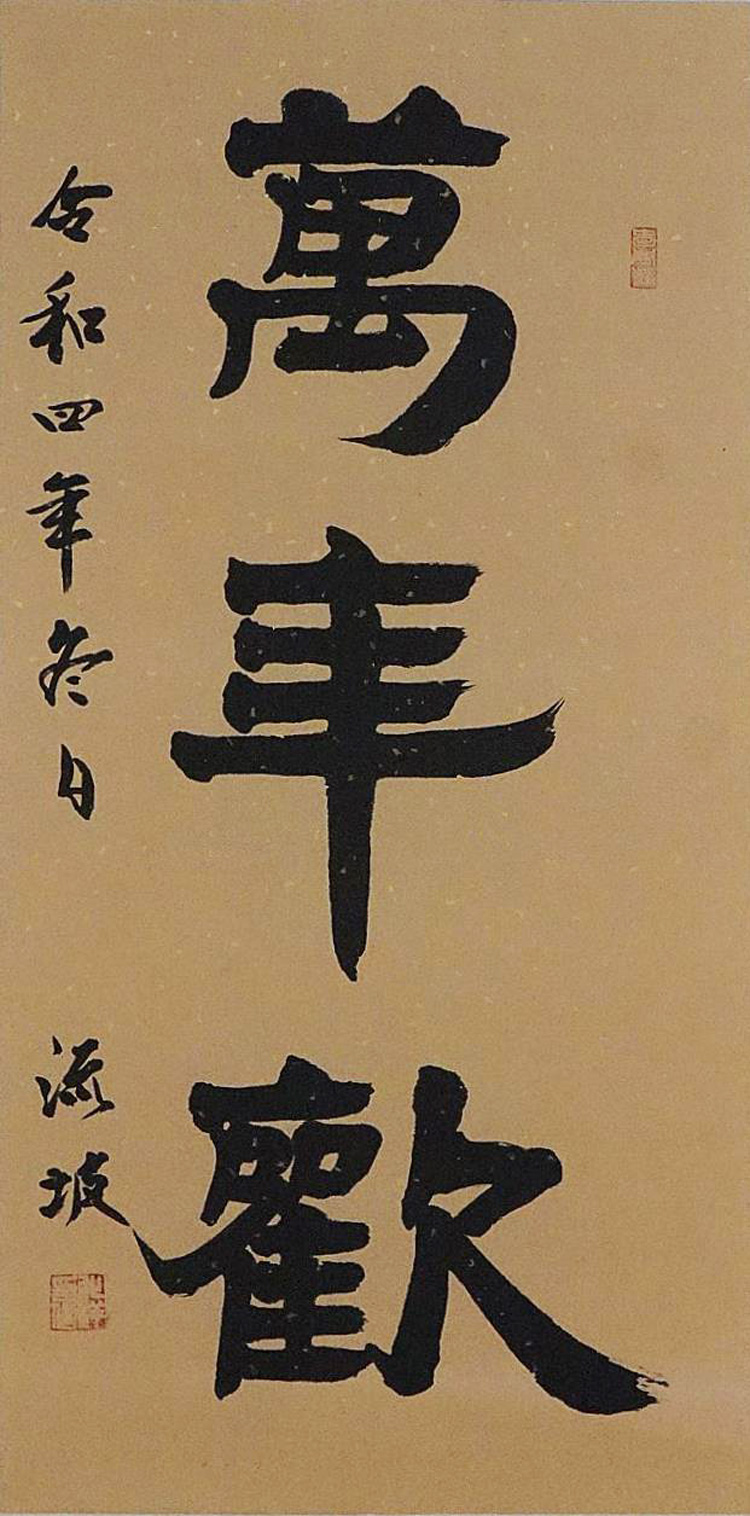 萬年歡
令和四年冬日 流坡